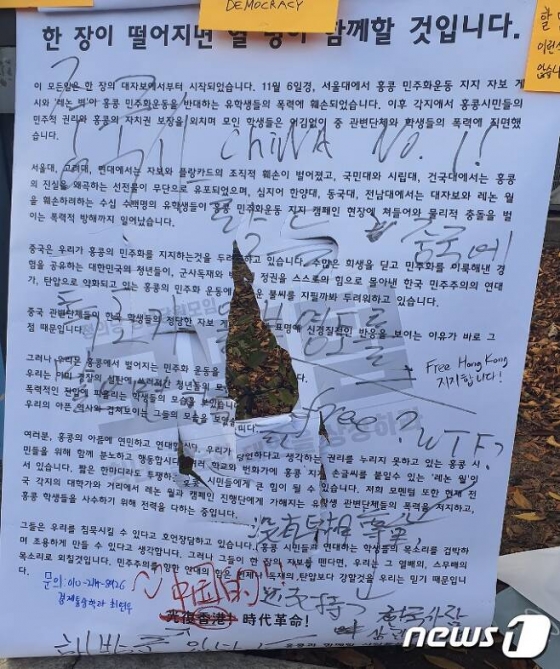 DEMOCRACY
한 장이 떨어지면 열 명이 함께할 것입니다.
할
이런
없습니
이 모든 한 장의 대자보에서부터 시작되었습니다. 11월 6일경, 서울대에서 홍콩 민주화운동 지지 자보 게
시와 '레논 벽'이 홍콩 민주화운동을 반대하는 유학생들의 폭력에 훼손되었습니다. 이후 각지에서 홍콩시민들의
민주적 권리와 홍콩의 자치권 보장을 외치며 모인 학생들은 어김없이 중 관변단체와 학생들의 폭력에 직면했
습니다.
CHINA NO.1!!
서울대, 고려대, 연대에서는 자보와 플랑카드의 조직적 훼손이 벌어졌고, 국민대와 시립대, 건국대에서는 홍콩
의 진실을 왜곡하는 선전물이 무단으로 유포되었으며, 심지어 한양대, 동국대, 전남대에서는 대자보와 레논 월
을 훼손하려하는 수십 수백명의 유학생들이 홍콩 민주화운동 지지 캠페인 현장에 쳐들어와 물리적 충돌을 벌
이는 폭력적 방해까지 일어났습니다.
홍콩는 중국에
중국은 우리가 홍콩의 민주화를 지지하는것을 두려 하고 있습니다. 수많은 희생을 딛고 민주화를 이룩해낸 경
험을 공유하는 대한민국의 청년들이, 군사독재와 정권을 스스로의 힘으로 몰아낸 한국 민주주의의 연대
가, 탄압으로 약화되고 있는 홍콩의 민주화 운동에 불씨를 지필까봐 두려워하고 있습니다.
중국 관변단체들이 한국 학생들의 정당한 자보 게 표명에 신경질적인 반응을 보이는 이유가 바로 그
점 때문입니다.
그러나 우리는 홍콩에서 벌어지는 민주화 운동을
Free Hong Kong
지지합니다!
우리는 청년들의
폭력적인 학생들의 모습을 보았습니다.
우리의 아픈 역사와 겹쳐보이는 그들의 모습을
free? WTF?
여러분, 홍콩의 아픔에 연민하고 연대합시다. 우리가 당연하다고 생각하는 권리를 누리지 못하고 있는 홍콩 시
민들을 위해 함께 분노하고 행동합시다. 학교와 번화가에 홍콩 지지 손글씨를 붙일수 있는 '레논 월'이
있습니다. 짧은 한마디라도 투쟁하는 홍콩 시민들에게 큰 힘이 될 수 있습니다. 저희 모멘텀 또한 현재 전
국 각지의 대학가와 거리에서 레논 월과 캠페인 진행단에게 가해지는 유학생 관변단체들의 폭력을 저지하고,
홍콩 학생들을 사수하기 위해 전력을 다하는 중입니다.
그들은 우리를 침묵시킬 수 있다고 호언장담하고 있습니다. 홍콩 시민들과 연대하는 학생들의 목소리를 겁박하
며 조용하게 만들 수 있다고 생각합니다. 그러나 그들이 한 장의 자보를 떼면, 우리는 그 열배의, 스무배의
목소리로 외칠것입니다. 민주주의를 향한 연대의 함 언제나 독재의 탄압보다 강할것을 우리는 믿기 때문입니
다.
中国的
光復香港, 時代革命!
news1